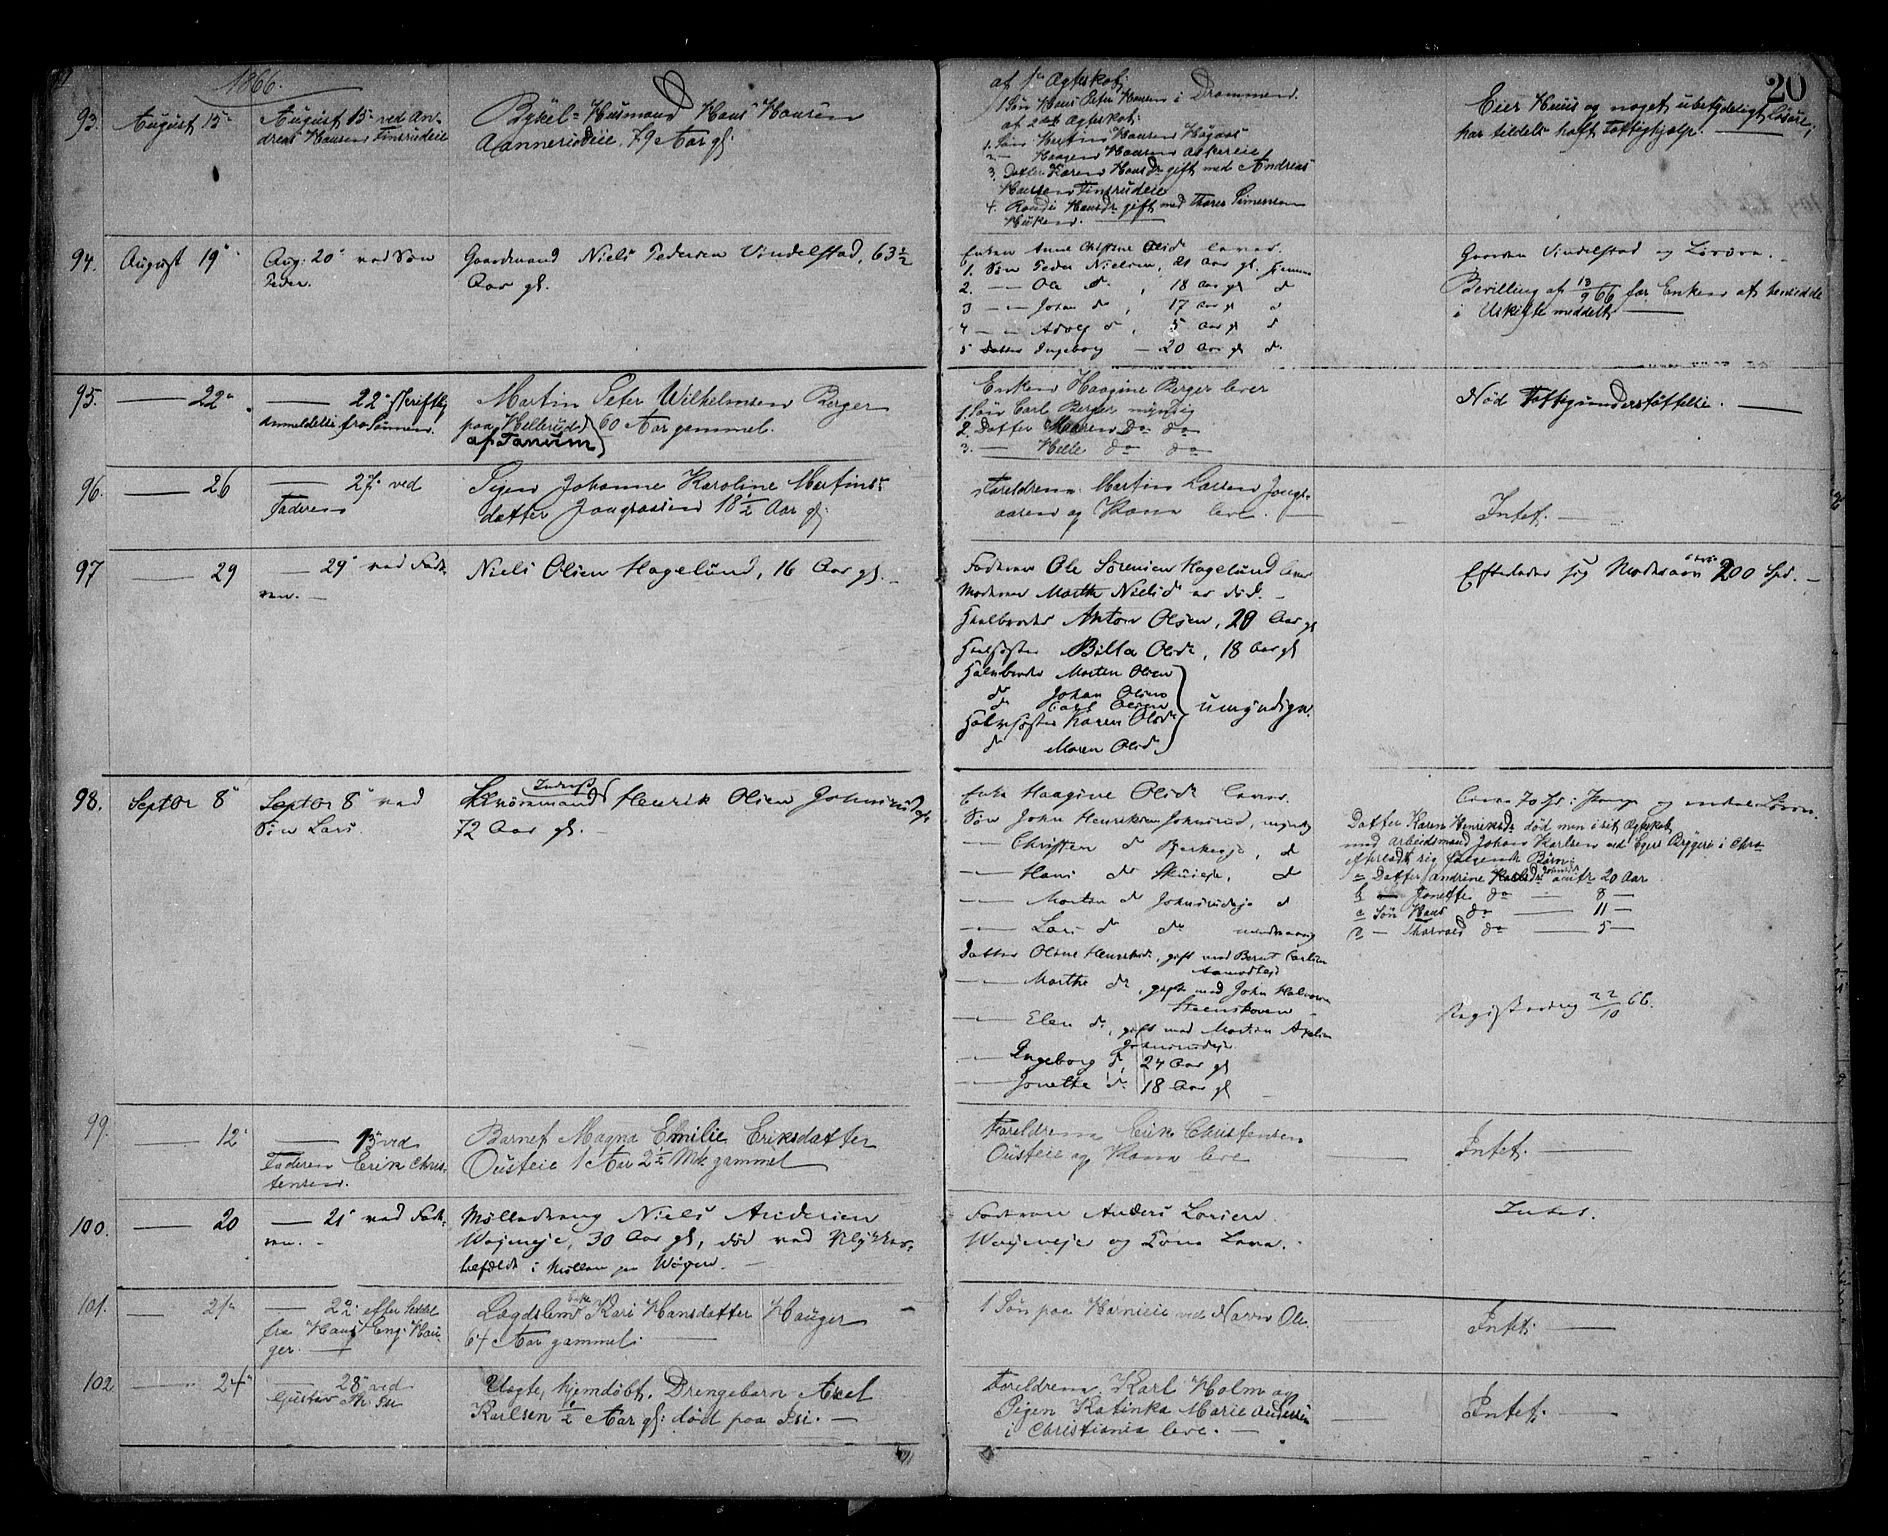 1866.
20
93.
August 15
August 15 ved An-
dreas Hansen Tinsrudeie
Hans Hansen
79 Aar gl:
af 1e Ægteskab;
1 Søn Hans Peter Hansen i Drammen.
af 2det Ægteskab:
1. Søn Martin Hansen
2. — Haagen Hansen Askereie
3. Datter Karen Hansdr gift med Andreas
Hansen Tinsrudeie
4. Randi Hansdr gift med Thores Simensen
Eier Huus og noget ubetydeligt Løsøre;
har tildels haft Fattighjælp.
94.
August 19
Aug: 20 ved Søn
Peder.
Gaardmand Niels Pedersen Vindelstad, 63 1/2
Aar gl.
Enken Anne Olsdr lever.
1. Søn Peder Nielsen, 21 Aar gl. hjemme
2. — Ole do, 18 Aar gl do
3 — Johan do, 17 Aar gl do
4 — Adolf do, 5 Aar gl do
5 Datter Ingeborg — 20 Aar gl do
Gaarden Vindelstad og Løsøre.
Bevilling af 13/9 66 for Enken at hensidde
i Uskifte meddelt
95.
— 22
— 22 skriftlig
anmeldelse fra Sønnen.
Martin Peter Wilhelmsen Berger
paa Hellerud
af Tanum
60 Aar gammel.
Enken Haagine Berger lever
1. Søn Carl Berger myndig
2. Datter Maren Do do
3. — Helle do do
Nød Fattigunderstøttelse.
96.
— 26
— 27 ved
Faderen
Pigen Johanne Karoline Martins-
datter 18 1/2 Aar gl:
Forældrene Martin Larsen
og Kone leve.
Intet.
97
— 29
— 29 ved Fade-
ren.
Niels Olsen Hagelund, 16 Aar gl.
Faderen Ole Sørensen Hagelund lever
Moderen Marthe Nielsdr er død.
Halvbroder Anton Olsen, 20 Aar gl
Halvsøster Olsdr, 18 Aar gl
Halvbroder Morten Olsen
do Johan Olsen
do Carl Olsen
Halvsøster Karen Olsdr
do Maren Olsdr
umyndige.
Efterlader sig Mødrearv 200 Spd.
98.
Septbr 8
Septbr 8 ved
Søn Lars.
Henrik Olsen
72 Aar gl.
Enke Haagine Olsdr lever.
Søn John Henriksen Johnsrud, myndig
— Christen do, do
— Hans do, do
— Morten do Johnsrudeje do
— Lars do do
Datter Olsine Henriksdr, gift med Bernt Carlsen
— Marthe do, gift med John Halvorsen
Steenskoven
— Elen do, gift med Morten Axelsen
Johnsrudeje
— Ingeborg do, 24 Aar gl
— Jonette do 18 Aar gl
Datter Karen Henriksdr død men i sit Ægteskab
med Arbeidsmand Johan Karlsen ved Egers Bryggeri i Chra
efterladt sig følgende Børn:
a Datter Andrine Johansdr omtr 20 Aar
b — Jonette do — 8 —
c Søn Hans do — 11 —
d — Thorvald do — 5 —
Registrering 22/10 66.
99.
— 12
— 15 ved
Faderen Erik Chris-
tensen.
Barnet Magna Emilie Eriksdatter
Ousteie 1 Aar 2 Mdr gammel
Forældrene Erik Christensen
Ousteie og Kone leve
Intet.
100.
— 20
— 21 ved Fade-
ren.
Mølledreng Niels Andersen
Wøyeneje, 30 Aar gl, død ved Ulykkes-
tilfælde i Møllen paa Wøyen.
Faderen Anders Larsen
Wøyeneje og Kone leve.
Intet.
101.
— 21
— 22 efter Seddel
fra Hans Eng: Hau-
ger.
Lægdslem Enke Kari Hansdatter Hauger
64 Aar gammel.
1 Søn paa ved Navn Ole.
Intet.
102
— 24
— 28 ved
Gustav
Uægte, hjemdøbt, Drengebarn Axel
Karlsen 10/12 Aar gl: død paa
Forældrene, Karl Holm og
Pigen Katinka Marie Andersen
i Christiania leve.
Intet.